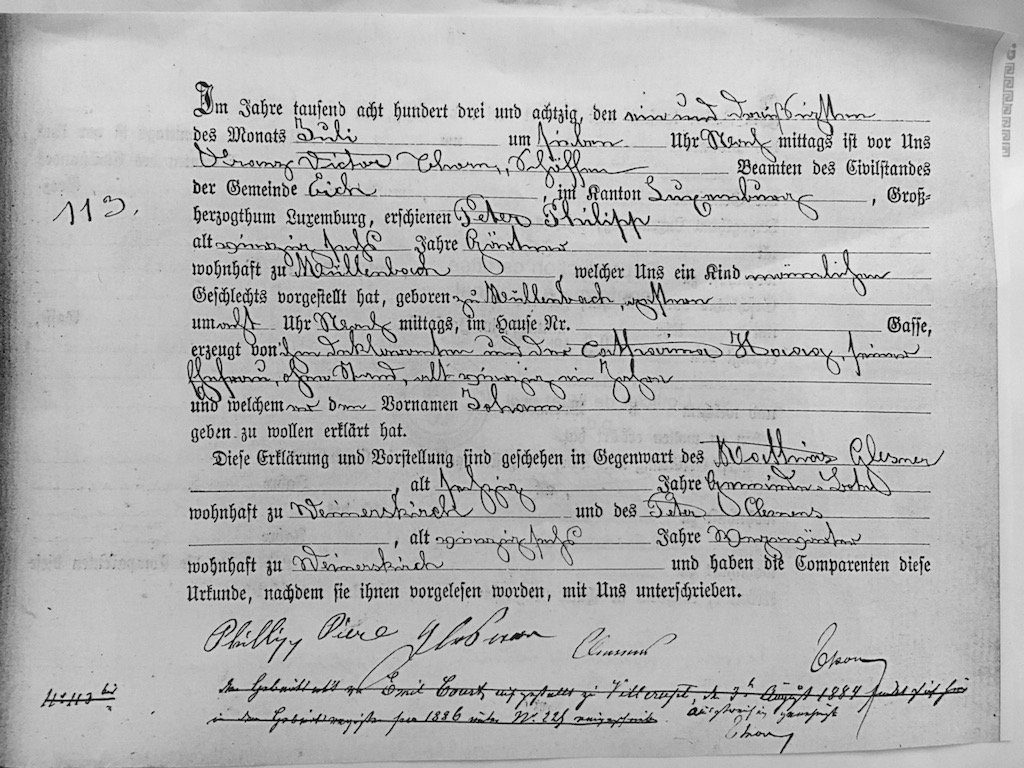 Im Jahre tausend acht hundert drei und achtzig, den ein und dreißigsten
des Monats Juli um sieben Uhr Nach mittags ist vor Uns
Victor Thorn, Schöffen Beamten des Civilstandes
der Gemeinde Eich, im Kanton Luxemburg, Groß-
113.
herzogthum Luxemburg, erschienen Peter Philipp
alt vierzig sechs Jahre Gärtner
wohnhaft zu Mullenbach, welcher Uns ein Kind männlichen
Geschlechts vorgestellt hat, geboren zu Mullenbach, gestern
um acht Uhr Nach mittags, im Hause Nr. Gasse,
erzeugt von ihm Deklaranten und der Catharina seiner
Ehefrau, ohne Stand, alt vierzig ein Jahre
und welchem er den Vornamen Johann
geben zu wollen erklärt hat.
Diese Erklärung und Vorstellung sind geschehen in Gegenwart des Mathias Glesner
, alt Jahre Gemeinde-
wohnhaft zu Weimerskirch und des Peter Clemens
, alt vierzig sechs Jahre
wohnhaft zu Weimerskirch und haben die Comparenten diese
Urkunde, nachdem sie ihnen vorgelesen worden, mit Uns unterschrieben.
Phillipp Piere Glesener Clemens Thorn
No 113 bis
Emil Court, zu den August 1884
in den Geburtsregister pro 1886 unter N.
Thorn